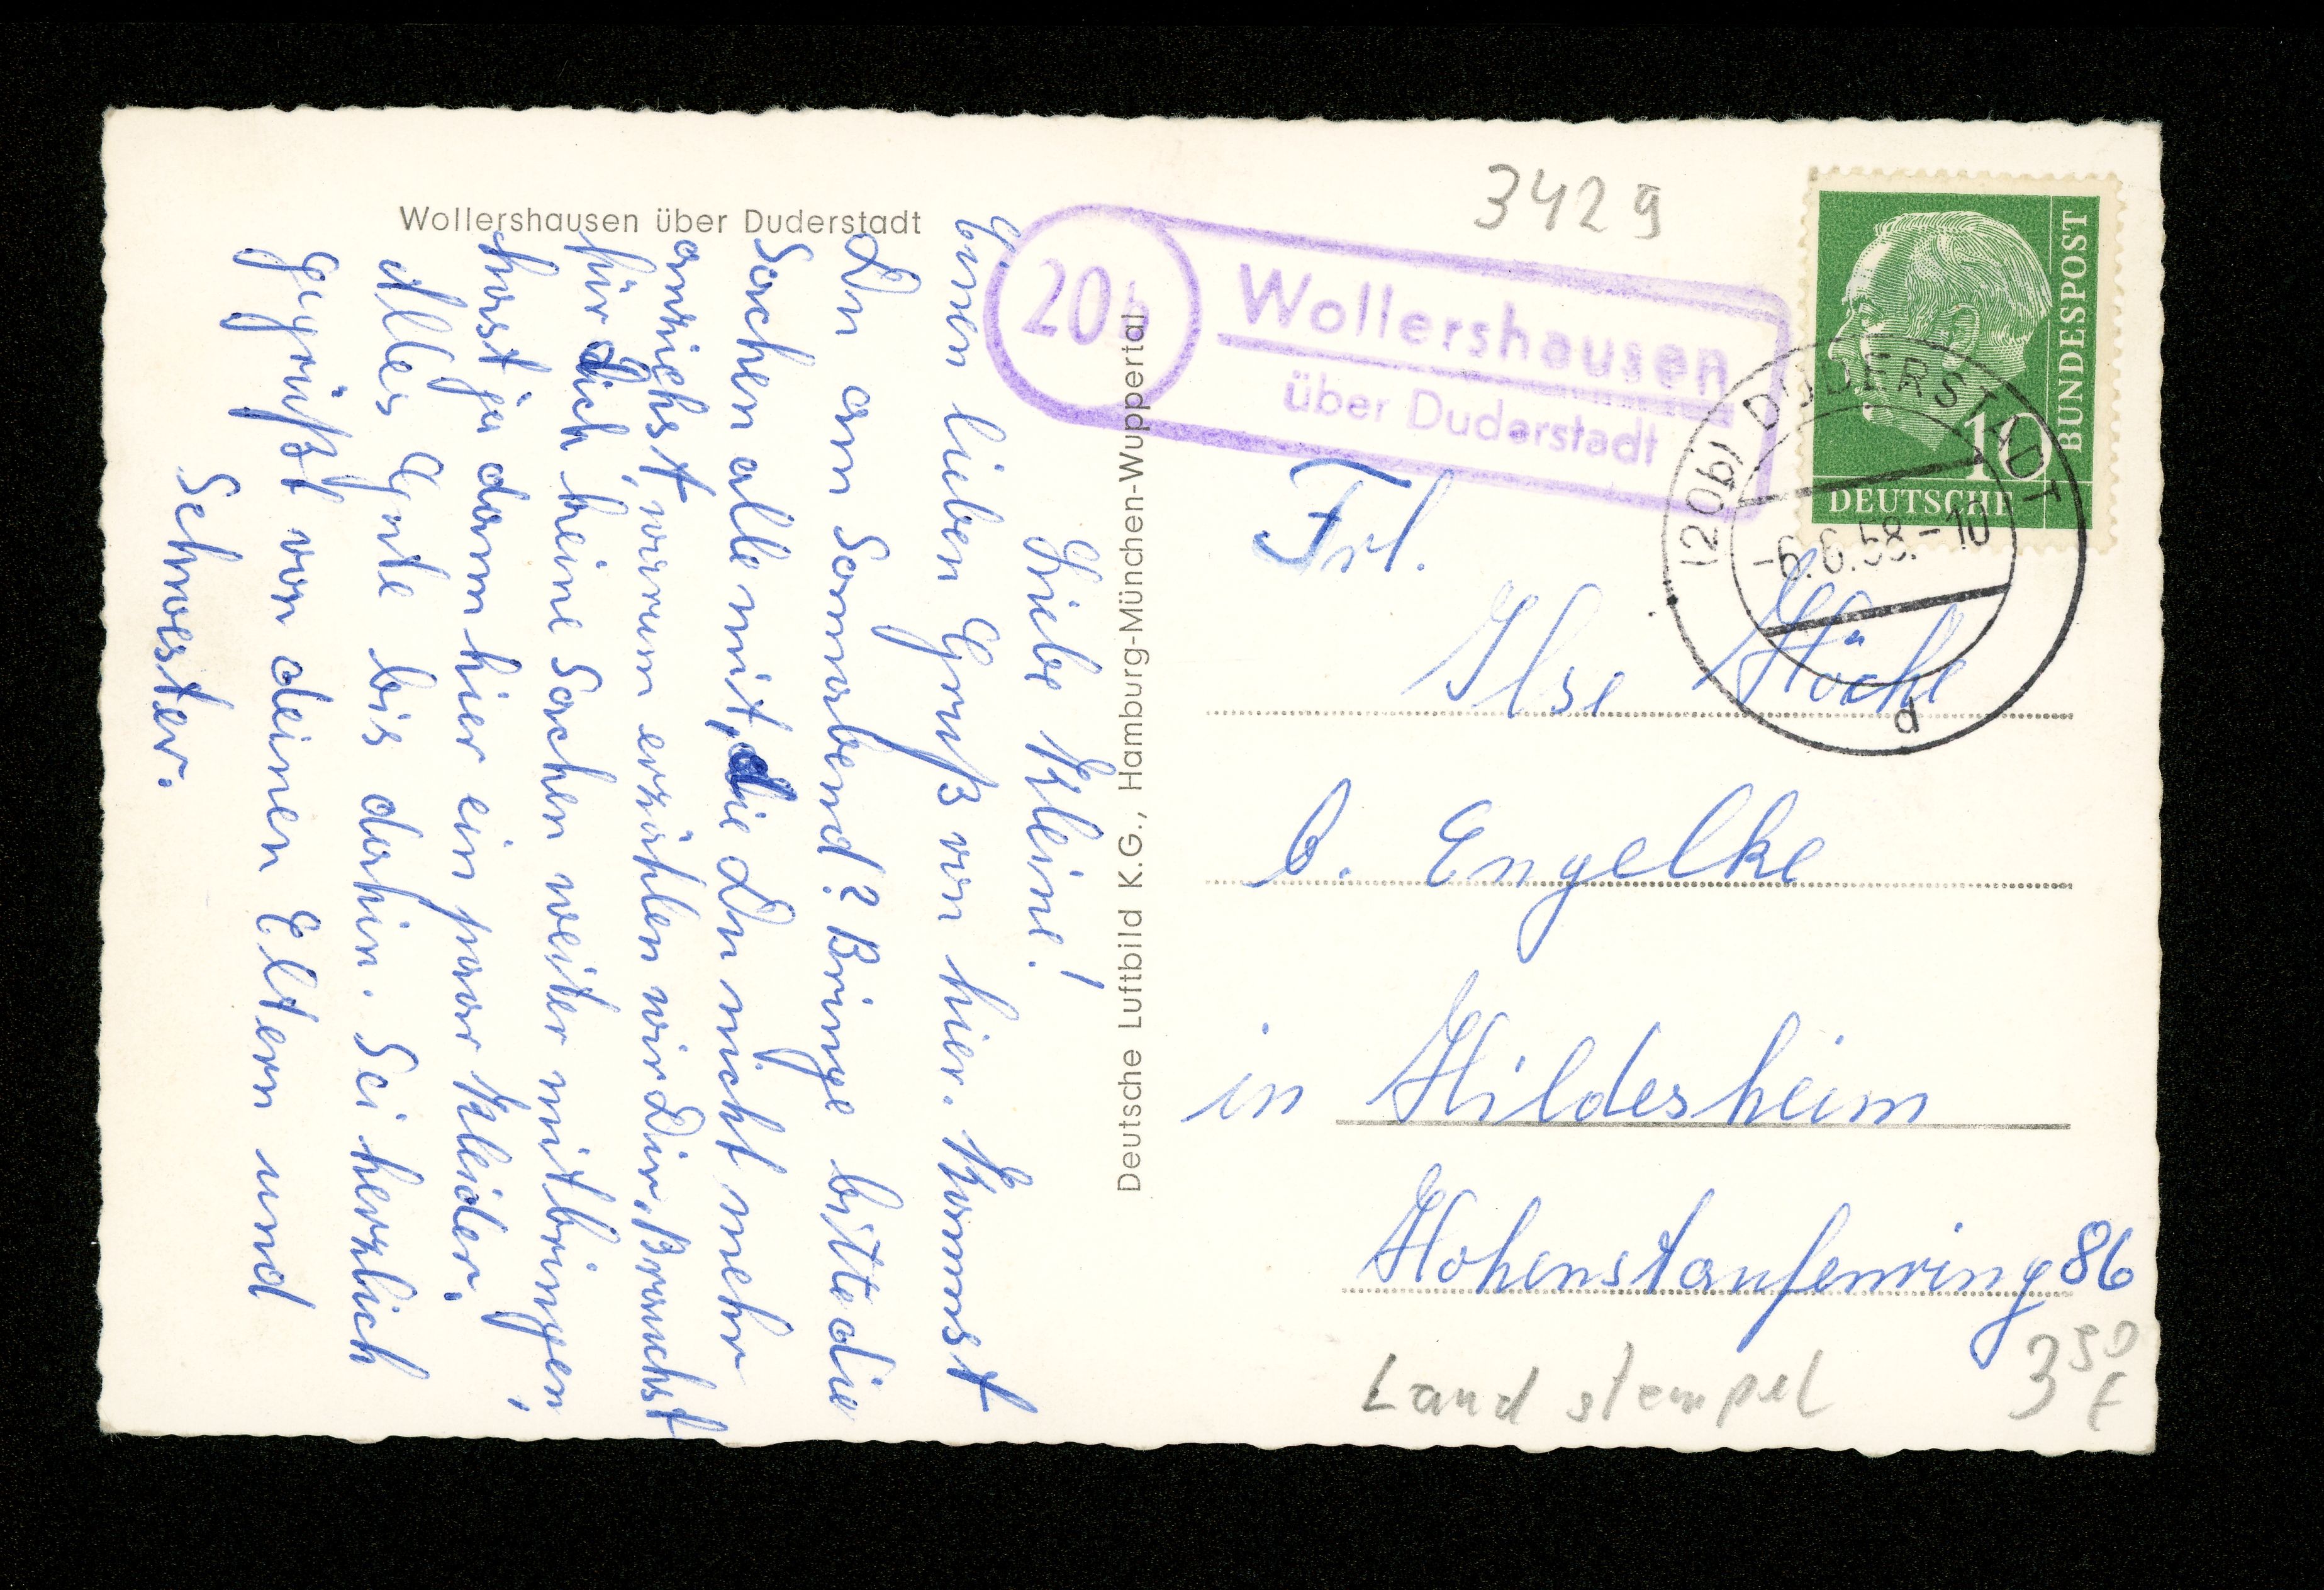 Wollershausen über Duderstadt
Liebe Kleine!
Einen lieben Gruß von hier. Kommst
Du am Sonnabend? Bringe bitte die
Sachen alle mit, die Du nicht mehr
anziehst, warum erzählen wir Dir. Brauchst
für Dich keine Sachen weiter mitbringen,
hast ja dann hier ein paar Kleider.
Alles Gute bis dahin. Sei herzlich
gegrüßt von deinen Eltern und
Schwester.
Deutsche Luftbild K.G., Hamburg-München-Wuppertal
3429
20b
Wollershausen
über Duderstadt
10
DEUTSCHE
BUNDESPOST
(20b) DUDERSTADT
-6.6.58.-10
d
Frl.
Ilse
b. Engelke
in Hildesheim
Hohenstaufenring 86
Landstempel
3 50 €